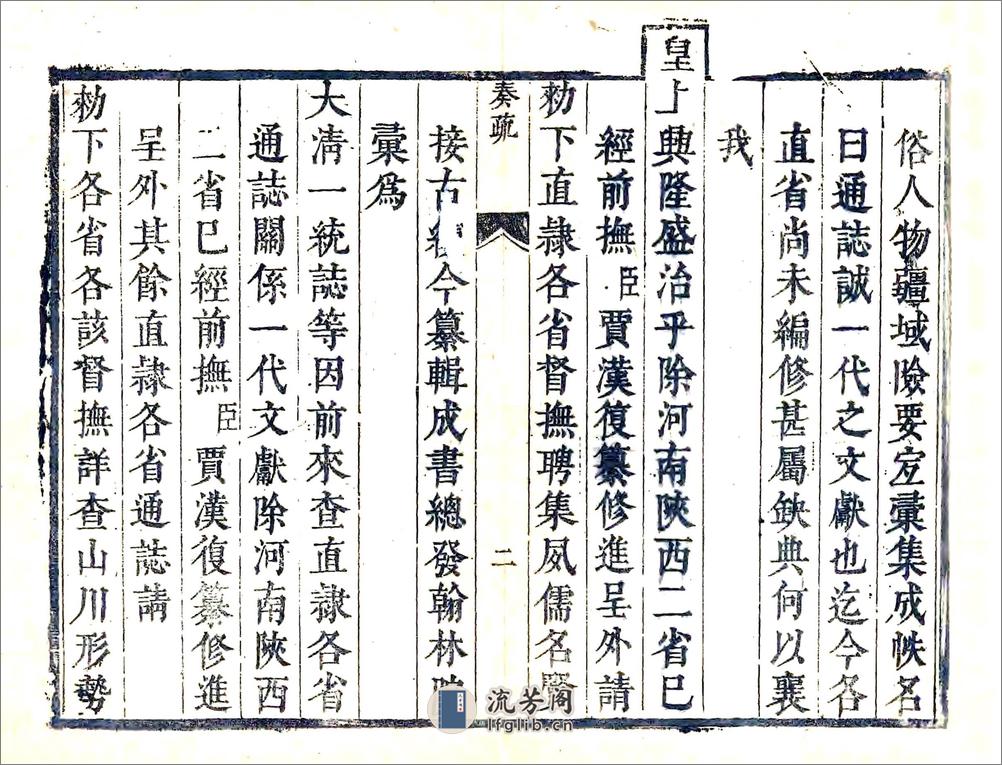 俗人物疆域險要宜彙集成帙名
曰通誌誠一代之文獻也迄今各
直省尚未編修甚屬缺典何以襄
我
皇上興隆盛治乎除河南陝西二省已
經前撫臣賈漢復纂修進呈外請
勅下直隸各省督撫聘集夙儒名
奏疏
二
接古今纂輯成書總發翰林
彙為
大清一統誌等因前來查直隸各省
通誌關係一代文獻除河南陝西
二省已經前撫臣賈漢復纂修進
呈外其餘直隸各省通誌請
勅下各省各該督撫詳查山川形勢
流芳阁
lfglib.cn